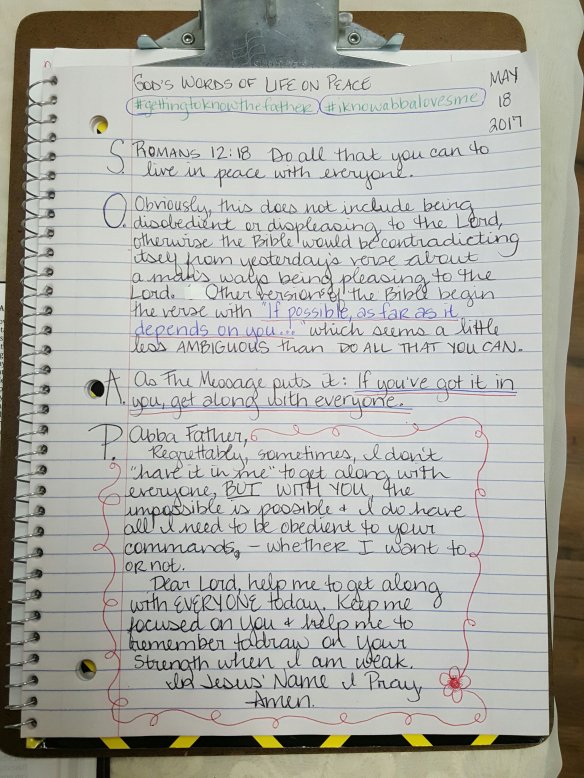 God's Words of Life on Peace
#gettingtoknowthefather #iknowabbalovesme
May
18
2017
S. Romans 12:18 Do all that you can to
live in peace with everyone.
O. Obviously, this does not include being
disobedient or displeasing to the Lord,
otherwise the Bible would be contradicting
itself from yesterday's verse about
a man's ways being pleasing to the
Lord. Other versions of the Bible begin
the verse with "If possible, as far as it
depends on you..." which seems a little
less AMBIGUOUS than DO ALL THAT YOU CAN.
A. As The Message puts it: If you've got it in
you, get along with everyone.
P. Abba Father,
Regrettably, sometimes, I don't
"have it in me" to get along with
everyone, BUT WITH YOU, the
impossible is possible & I do have
all I need to be obedient to your
commands, - whether I want to
or not.
Dear Lord, help me to get along
with EVERYONE today. Keep me
focused on You & help me to
remember to draw on Your
Strength when I am weak.
In Jesus' Name I Pray
Amen.